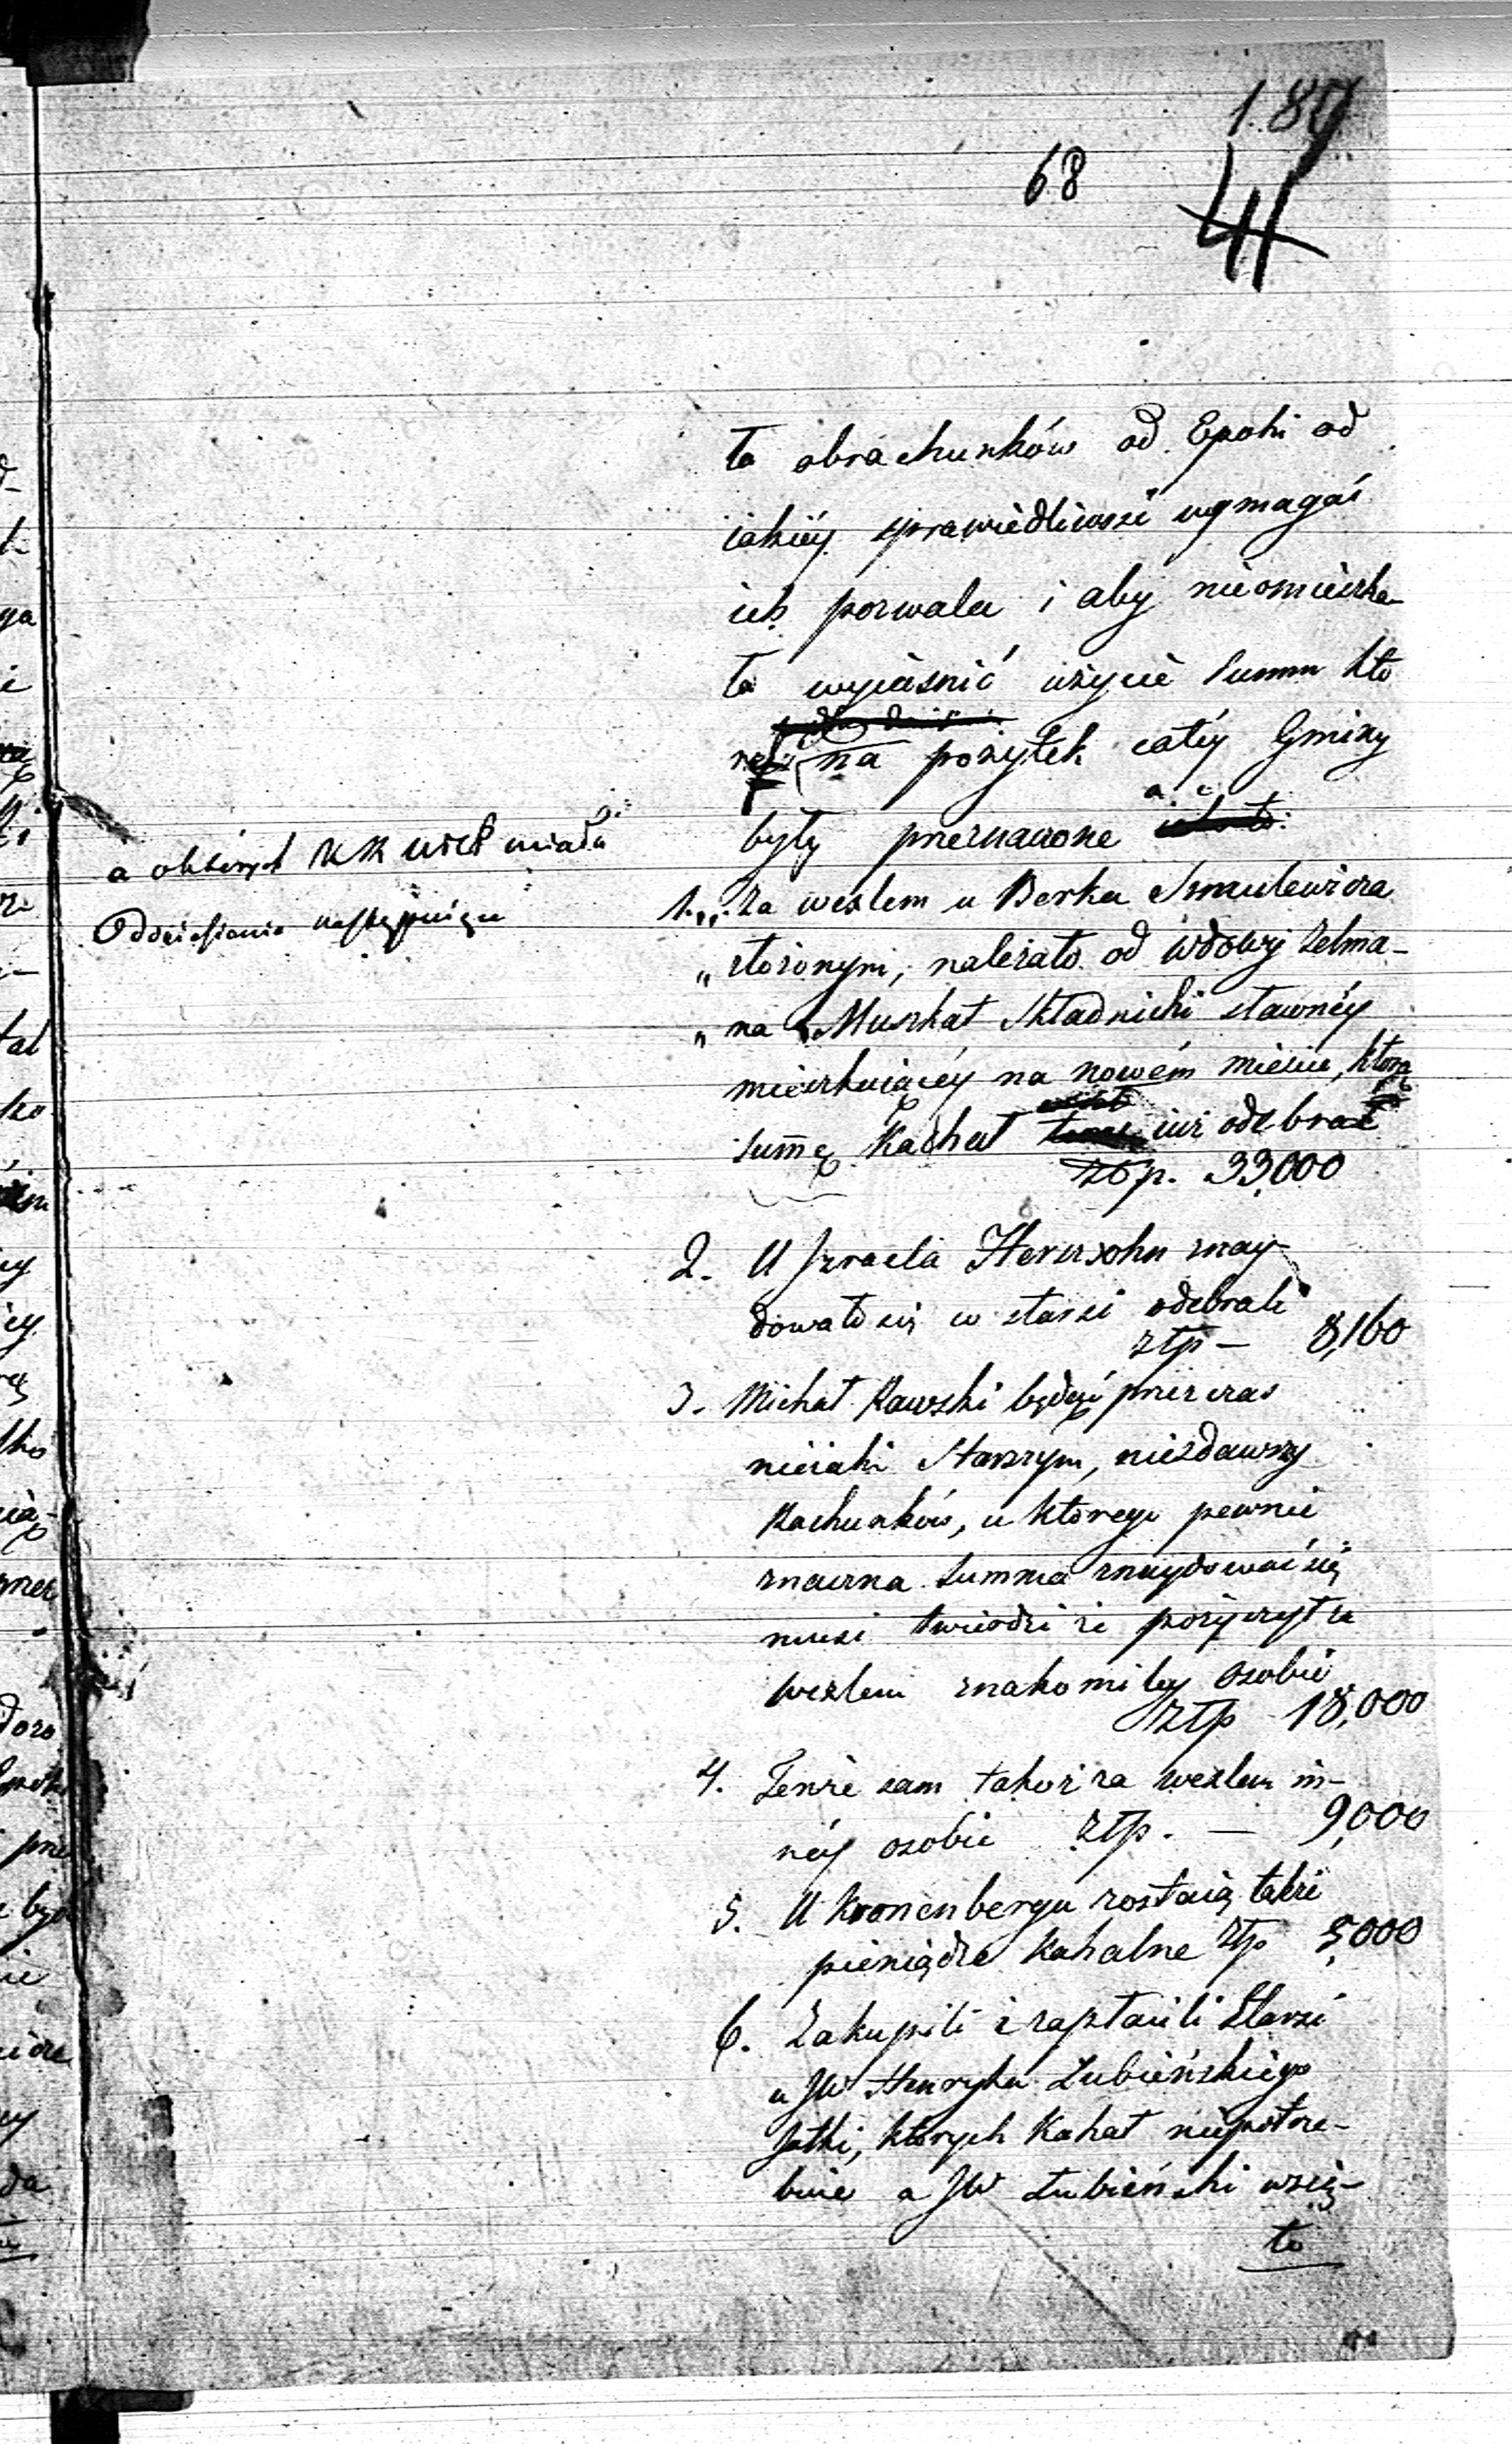 189
68
41
ta obrachunków od Epoki od
iakiéy sprawiedliwość wymagać
ich pozwala i aby nieomieszka-
ła wyiaśnić użycie Summ któ
na pożytek całéy Gminy
były przeznaczone
a których KK wieś miała
Doniesienie następuiące
1. Za wexlem u Berka Szmulewicza
„ złożonym, należało od wdowy Zelma-
„ na Muszkat Składniczki stawnéy
mieszkaiącéy na nowém mieście, którą
summę Kachał iuż odebrał
złp. 33,000
2. U Izraela Herzsohn znay-
dowało się co starsi odebrali
złp – 8,160
3. Michał Rawski będąc przez czas
nieiaki Starszym, niezdawszy
Rachunków, u którego pewnie
znaczna Summa znaydować się
musi twierdzi że pożyczył za
wexlem znakomitéy osobie
złp 18,000
4. Tenże sam takoż za wexlem in-
néy osobie złp. – 9,000
5. U Kronenberga zostaią także
pieniądze Kahalne złp 5,000
6. Zakupili i zapłacili Starsi
u JW Henryka Łubieńskiego
Jatki, których Kahał niepotrze-
buie a JW Łubieński wzią-
ł